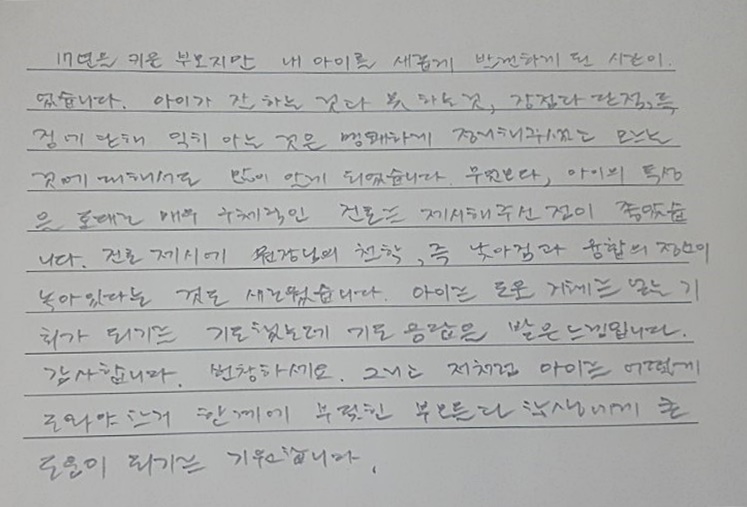 17년을 키운 부모지만 내 아이를 새롭게 발견하게 된 시간이
었습니다. 아이가 잘 하는 것과 못 하는 것, 강점과 단점, 특
징에 대해 익히 아는 것은 명쾌하게 정리해주셨고 모르는
것에 대해서도 많이 알게 되었습니다. 무엇보다, 아이의 특성
을 토대로 매우 구체적인 진로를 제시해주신 점이 좋았습
니다. 진로 제시에 원장님의 철학, 즉 낮아짐과 융합의 정신이
녹아있다는 것도 새로웠습니다. 아이를 도울 기회가
되기를 기도했는데 기도 응답을 받은 느낌입니다.
감사합니다. 번창하세요. 그리고 저처럼 아이를 어떻게
도와야 할지 한계에 부딪힌 부모들과 학생에게 큰
도움이 되기를 기원합니다.